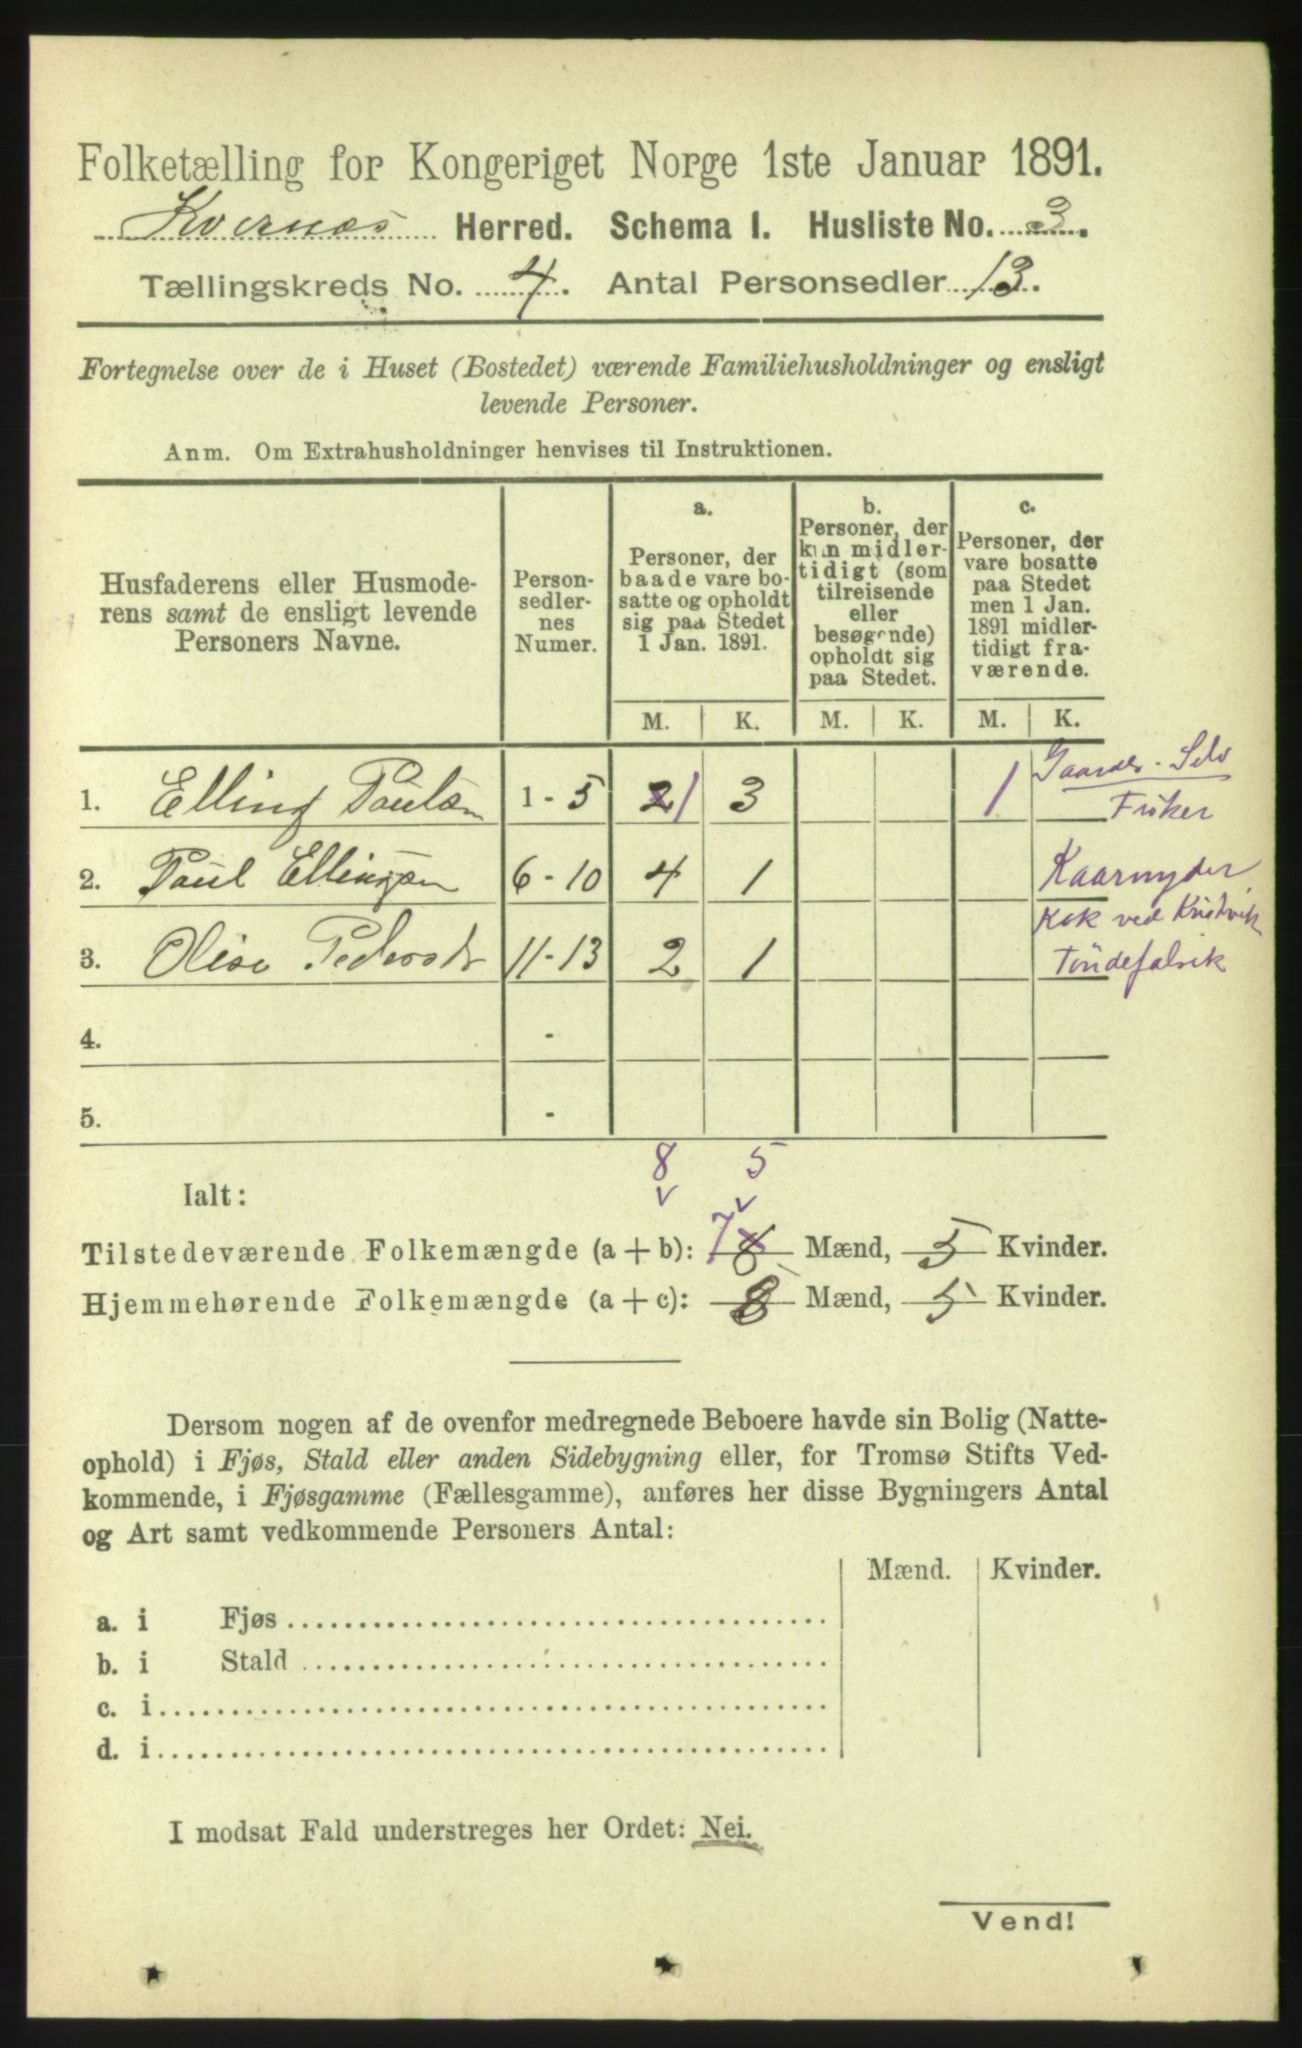 Folketælling for Kongeriget Norge 1ste Januar 1891.
Kvernes Herred. Schema I. Husliste No. 3.
Tællingskreds No. 4. Antal Personsedler 13.
Fortegnelse over de i Huset (Bostedet) værende Familiehusholdninger og ensligt
levende Personer.
Anm. Om Extrahusholdninger henvises til Instruktionen.
Husfaderens eller Husmode-
rens samt de ensligt levende
Personers Navne.
Person-
sedler-
nes
Numer.
a.
Personer, der
baade vare bo-
satte og opholdt
sig paa Stedet
1 Jan. 1891.
b.
Personer, der
kun midler-
tidigt (som
tilreisende
eller
besøgende)
opholdt sig
paa Stedet.
c.
Personer, der
vare bosatte
paa Stedet
men 1 Jan.
1891 midler-
tidigt fra-
værende.
M. K. M. K. M. K.
1. Elling Paulsen 1 - 5 2 1 3 1 Gaardbr. Selv
Fisker
2. Paul Ellingsen 6 - 10 4 1 Kaarnyder
3. Olise Pedersdr 11 - 13 2 1 Kok ved Kristvik
Tøndefabrik
4. -
5. -
8 5
Ialt:
Tilstedeværende Folkemængde (a + b): 7 8 Mænd, 5 Kvinder.
Hjemmehørende Folkemængde (a + c): 8 Mænd, 5 Kvinder.
Dersom nogen af de ovenfor medregnede Beboere havde sin Bolig (Natte-
ophold) i Fjøs, Stald eller anden Sidebygning eller, for Tromsø Stifts Ved-
kommende, i Fjøsgamme (Fællesgamme), anføres her disse Bygningers Antal
og Art samt vedkommende Personers Antal:
Mænd. Kvinder.
a. i Fjøs
b. i Stald
c. i
d. i
I modsat Fald understreges her Ordet: Nei.
Vend!